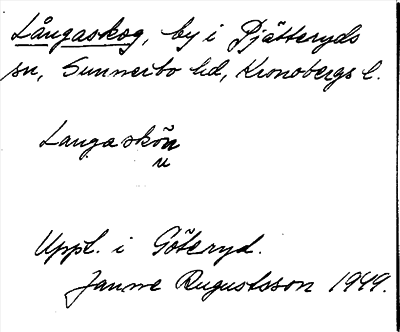 Långaskog, by i Pjätteryds
sn, Sunnerbo hd, Kronobergs l.
Langa skõn
u
Uppl. i Göteryd.
Janne Rugustsson 1949.